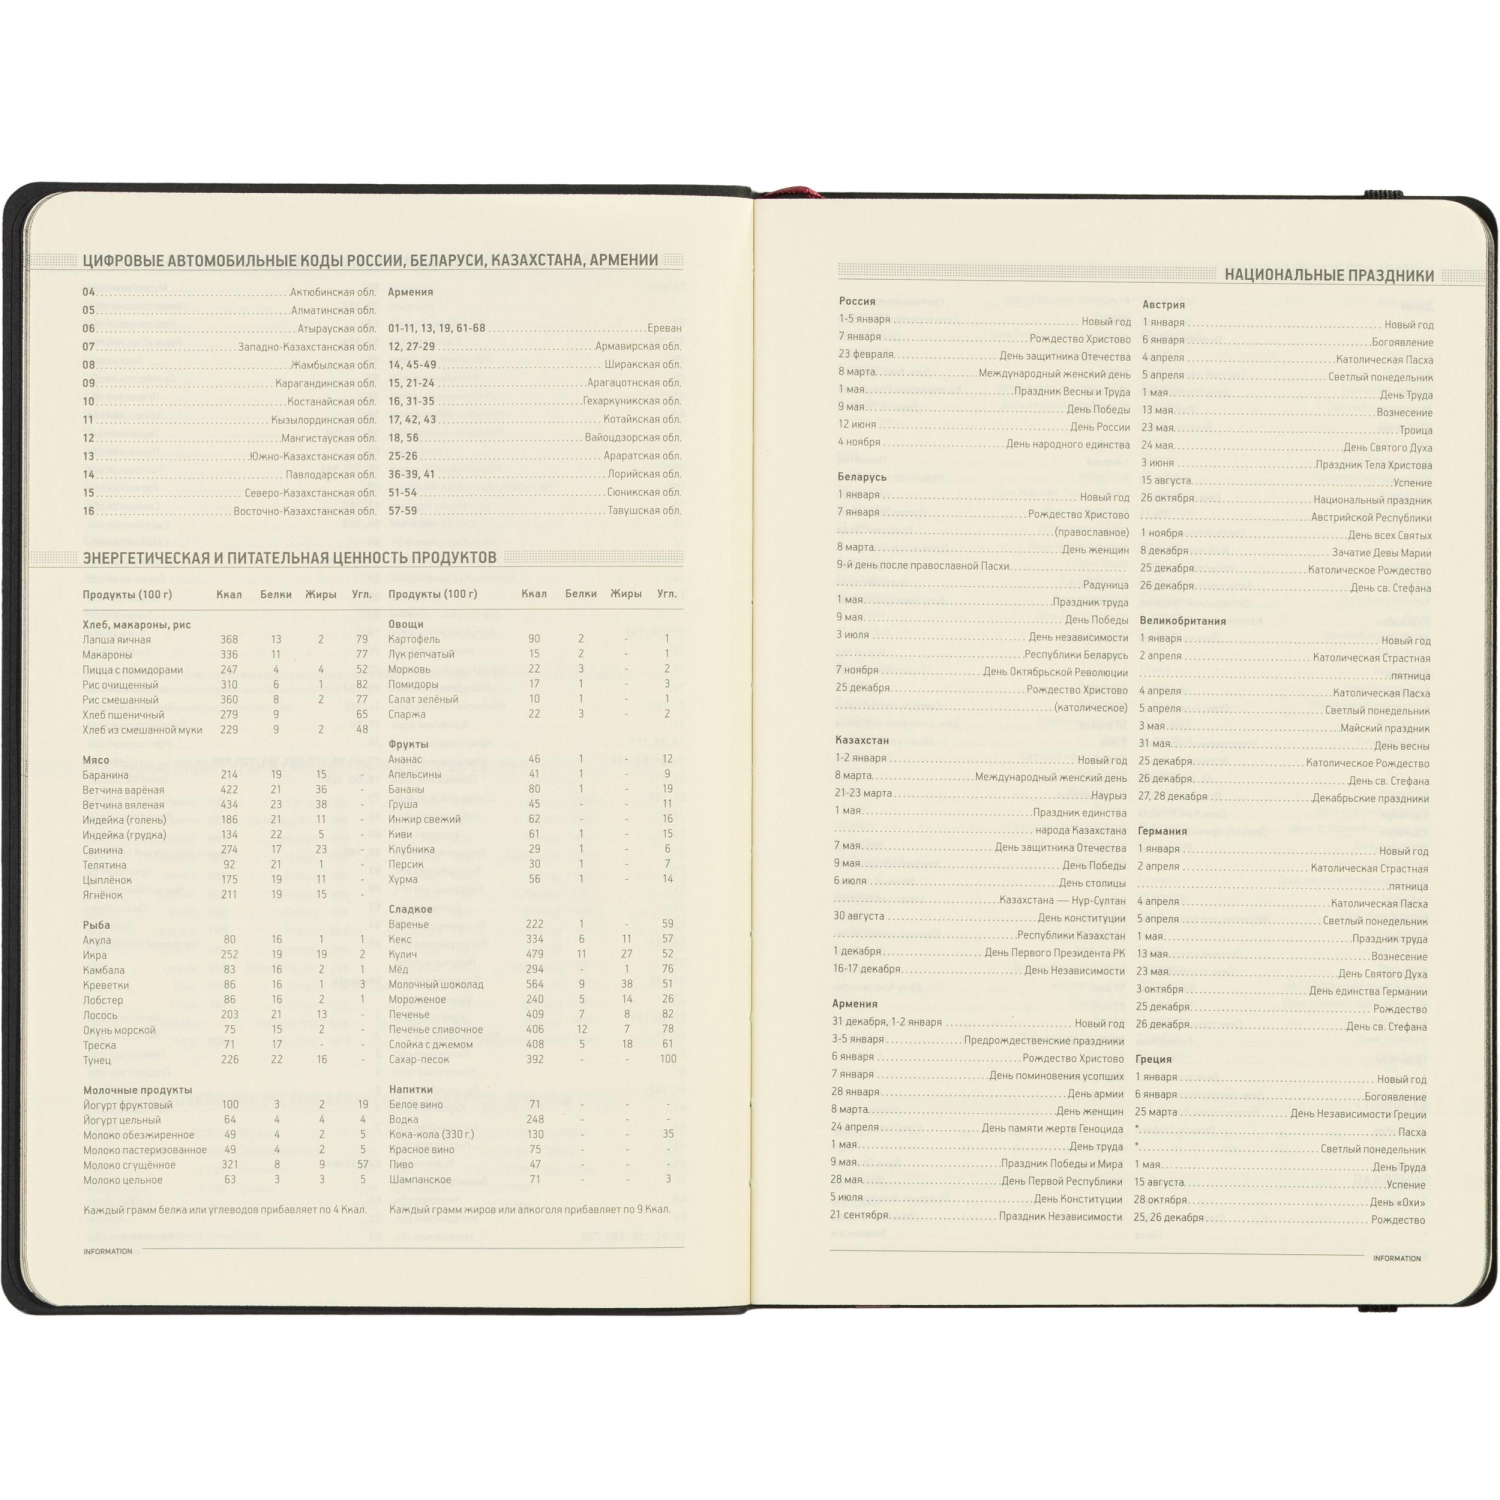 ЦИФРОВЫЕ АВТОМОБИЛЬНЫЕ КОДЫ РОССИИ, БЕЛАРУСИ, КАЗАХСТАНА, АРМЕНИИ
04 Актюбинская обл.
05 Алматинская обл.
06 Атырауская обл.
07 Западно-Казахстанская обл.
08 Жамбылская обл.
09 Карагандинская обл.
10 Костанайская обл.
11 Кызылординская обл.
12 Мангистауская обл.
13 Южно-Казахстанская обл.
14 Павлодарская обл.
15 Северо-Казахстанская обл.
16 Восточно-Казахстанская обл.
Армения
01-11, 13, 19, 61-68 Ереван
12, 27-29 Армавирская обл.
14, 45-49 Ширакская обл.
15, 21-24 Арагацотнская обл.
16, 31-35 Гехаркуникская обл.
17, 42, 43 Котайкская обл.
18, 56 Вайоцдзорская обл.
25-26 Араратская обл.
36-39, 41 Лорийская обл.
51-54 Сюникская обл.
57-59 Тавушская обл.
ЭНЕРГЕТИЧЕСКАЯ И ПИТАТЕЛЬНАЯ ЦЕННОСТЬ ПРОДУКТОВ
Продукты (100 г) Ккал Белки Жиры Угл.
Хлеб, макароны, рис
Лапша яичная 368 13 2 79
Макароны 336 11 77
Пицца с помидорами 247 4 4 52
Рис очищенный 310 6 1 82
Рис смешанный 360 8 2 77
Хлеб пшеничный 279 9 65
Хлеб из смешанной муки 229 9 2 48
Мясо
Баранина 214 19 15 -
Ветчина варёная 422 21 36 -
Ветчина вяленая 434 23 38 -
Индейка (голень) 186 21 11 -
Индейка (грудка) 134 22 5 -
Свинина 274 17 23 -
Телятина 92 21 1 -
Цыплёнок 175 19 11 -
Ягнёнок 211 19 15 -
Рыба
Акула 80 16 1 1
Икра 252 19 19 2
Камбала 83 16 2 1
Креветки 86 16 1 3
Лобстер 86 16 2 1
Лосось 203 21 13 -
Окунь морской 75 15 2 -
Треска 71 17 - -
Тунец 226 22 16 -
Молочные продукты
Йогурт фруктовый 100 3 2 19
Йогурт цельный 64 4 4 4
Молоко обезжиренное 49 4 2 5
Молоко пастеризованное 49 4 2 5
Молоко сгущённое 321 8 9 57
Молоко цельное 63 3 3 5
Каждый грамм белка или углеводов прибавляет по 4 Ккал.
Продукты (100 г) Ккал Белки Жиры Угл.
Овощи
Картофель 90 2 - 1
Лук репчатый 15 2 - 1
Морковь 22 3 - 2
Помидоры 17 1 - 3
Салат зелёный 10 1 - 1
Спаржа 22 3 - 2
Фрукты
Ананас 46 1 - 12
Апельсины 41 1 - 9
Бананы 80 1 - 19
Груша 45 - - 11
Инжир свежий 62 - - 16
Киви 61 1 - 15
Клубника 29 1 - 6
Персик 30 1 - 7
Хурма 56 1 - 14
Сладкое
Варенье 222 1 - 59
Кекс 334 6 11 57
Кулич 479 11 27 52
Мёд 294 - 1 76
Молочный шоколад 564 9 38 51
Мороженое 240 5 14 26
Печенье 409 7 8 82
Печенье сливочное 406 12 7 78
Слойка с джемом 408 5 18 61
Сахар-песок 392 - - 100
Напитки
Белое вино 71 - - -
Водка 248 - - -
Кока-кола (330 г.) 130 - - 35
Красное вино 75 - - -
Пиво 47 - - -
Шампанское 71 - - 3
Каждый грамм жиров или алкоголя прибавляет по 9 Ккал.
INFORMATION
НАЦИОНАЛЬНЫЕ ПРАЗДНИКИ
Россия
1-5 января Новый год
7 января Рождество Христово
23 февраля День защитника Отечества
8 марта Международный женский день
1 мая Праздник Весны и Труда
9 мая День Победы
12 июня День России
4 ноября День народного единства
Беларусь
1 января Новый год
7 января Рождество Христово
(православное)
8 марта День женщин
9-й день после православной Пасхи
Радуница
1 мая Праздник труда
9 мая День Победы
3 июля День независимости
Республики Беларусь
7 ноября День Октябрьской Революции
25 декабря Рождество Христово
(католическое)
Казахстан
1-2 января Новый год
8 марта Международный женский день
21-23 марта Наурыз
1 мая Праздник единства
народа Казахстана
7 мая День защитника Отечества
9 мая День Победы
6 июля День столицы
Казахстана — Нур-Султан
30 августа День конституции
Республики Казахстан
1 декабря День Первого Президента РК
16-17 декабря День Независимости
Армения
31 декабря, 1-2 января Новый год
3-5 января Предрождественские праздники
6 января Рождество Христово
7 января День поминовения усопших
28 января День армии
8 марта День женщин
24 апреля День памяти жертв Геноцида
1 мая День труда
9 мая Праздник Победы и Мира
28 мая День Первой Республики
5 июля День Конституции
21 сентября Праздник Независимости
Австрия
1 января Новый год
6 января Богоявление
4 апреля Католическая Пасха
5 апреля Светлый понедельник
1 мая День Труда
13 мая Вознесение
23 мая Троица
24 мая День Святого Духа
3 июня Праздник Тела Христова
15 августа Успение
26 октября Национальный праздник
Австрийской Республики
1 ноября День всех Святых
8 декабря Зачатие Девы Марии
25 декабря Католическое Рождество
26 декабря День св. Стефана
Великобритания
1 января Новый год
2 апреля Католическая Страстная
пятница
4 апреля Католическая Пасха
5 апреля Светлый понедельник
3 мая Майский праздник
31 мая День весны
25 декабря Католическое Рождество
26 декабря День св. Стефана
27, 28 декабря Декабрьские праздники
Германия
1 января Новый год
2 апреля Католическая Страстная
пятница
4 апреля Католическая Пасха
5 апреля Светлый понедельник
1 мая Праздник труда
13 мая Вознесение
23 мая День Святого Духа
3 октября День единства Германии
25 декабря Рождество
26 декабря День св. Стефана
Греция
1 января Новый год
6 января Богоявление
25 марта День Независимости Греции
* Пасха
* Светлый понедельник
1 мая День Труда
15 августа Успение
28 октября День «Охи»
25, 26 декабря Рождество
INFORMATION